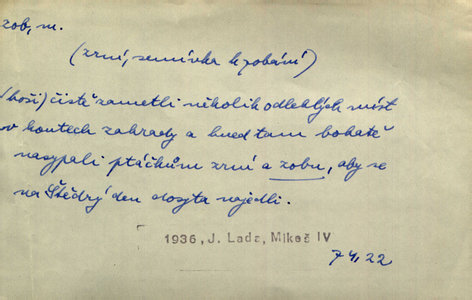 zob, m.
(zrní, semínka k zobání)
(hoši) čistě zametli několik odlehlých míst
v koutech zahrady a hned tam bohatě
nasypali ptáčkům zrní a zobu, aby se
na Štědrý den dosyta najedli.
1936, J. Lada, Mikeš IV
74, 22